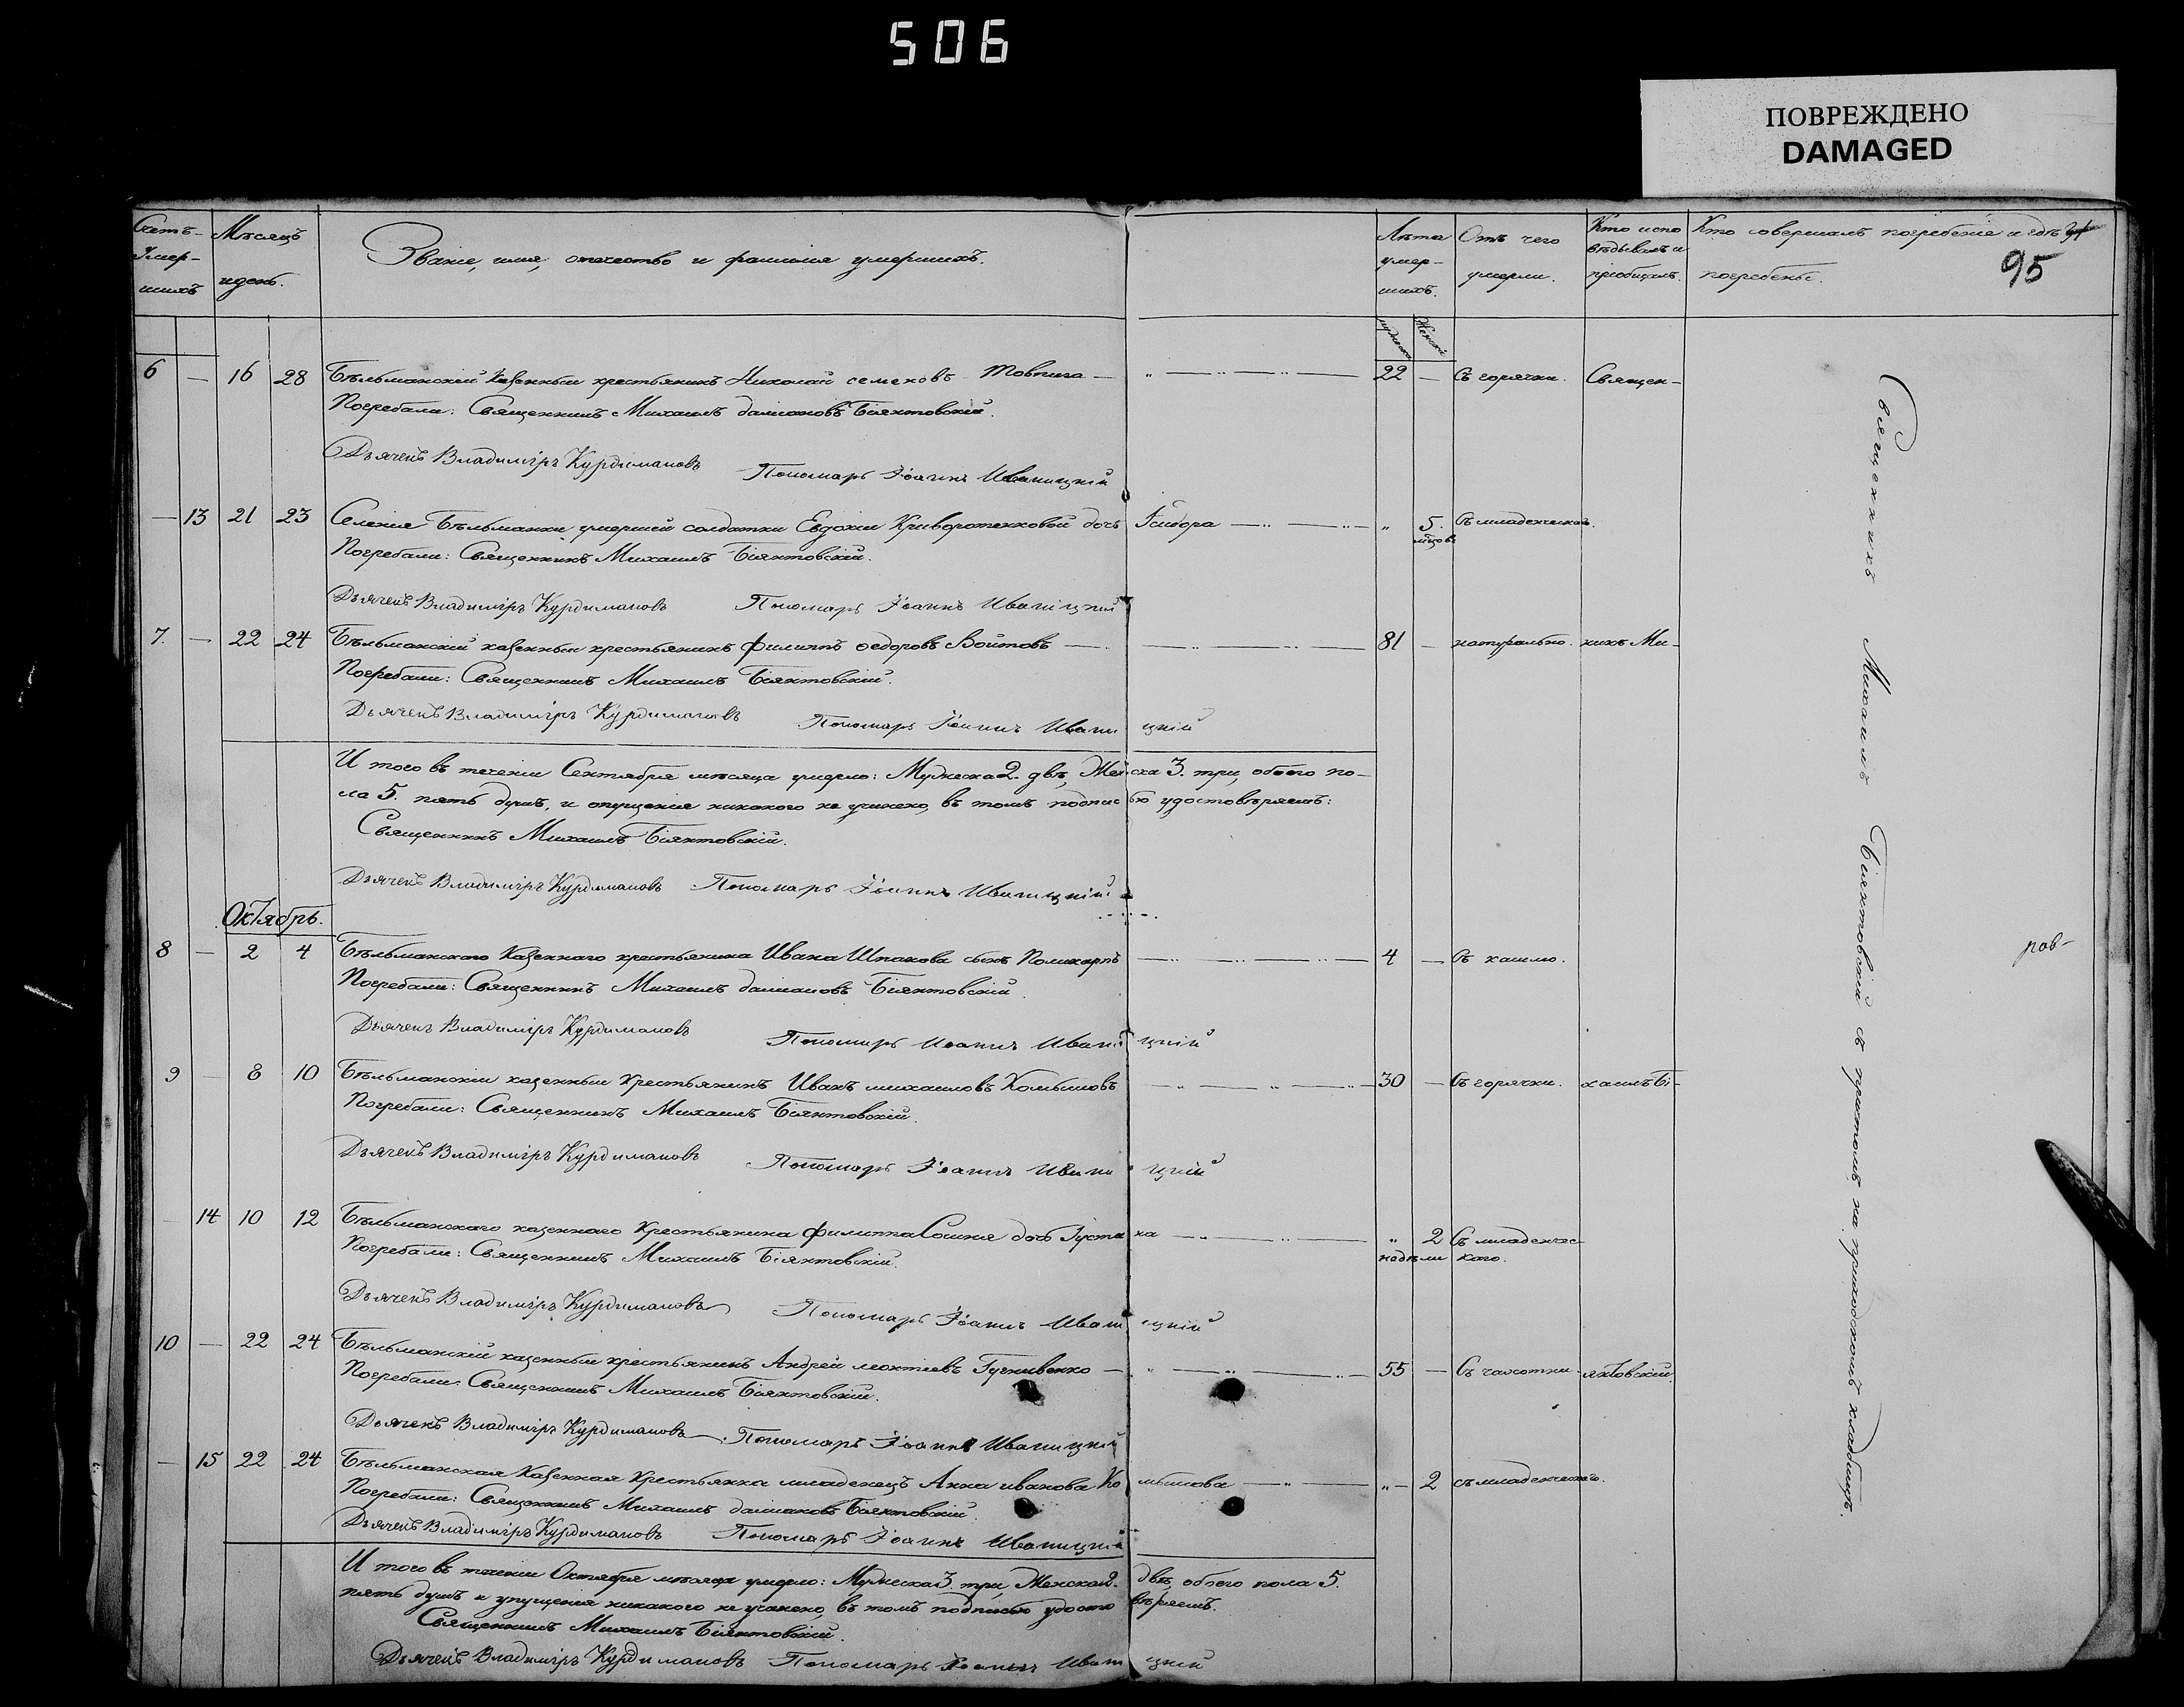 506
ПОВРЕЖДЕНО
DAMAGED
Счетъ Умершихъ
Мѣсяцъ и день.
Званіе, имя, отчество и фамилія умершихъ.
Лѣта умершихъ.
Отъ чего умерли.
Кто исповѣдывалъ и пріобщалъ.
Кто совершалъ погребеніе и гдѣ погребены.
95
мужеска Женска
6 — 16 28 Бѣльманскій казенный крестьянинъ Николай семеновъ Товпига — 22 — Съ горячки. Священ-
Погребали: Священникъ Михаилъ даміановъ Біянтовскій.
Дьячекъ Владиміръ Курдимановъ Пономарь Іоаннъ Иваницкій
— 13 21 23 Селенія Бѣльманки умершей солдатки Евдокіи Криворотенковой дочь Ісидора — " 5. мѣсцовъ Съ младенческаго.
Погребали: Священникъ Михаилъ Біянтовскій.
Дьячекъ Владиміръ Курдимановъ Пономарь Іоаннъ Иваницкій
7. — 22 24 Бѣльманскій казенный крестьянинъ Филиппъ Ѳедоровъ Войтовъ — 81 — натурально. никъ Ми-
Погребали: Священникъ Михаилъ Біянтовскій.
Дьячекъ Владиміръ Курдимановъ Пономарь Іоаннъ Иваницкій
И того въ теченіи Сентября мѣсяца умерло: Мужеска 2. двѣ, Женска 3. три, обоего по-
ла 5. пять душъ, и опущенія никакого не учинено, въ томъ подписью удостовѣряемъ:
Священникъ Михаилъ Біянтовскій.
Дьячекъ Владиміръ Курдимановъ Пономарь Іоаннъ Иваницкій
Октябрь.
8 — 2 4 Бѣльманскаго Казеннаго крестьянина Ивана Шпакова сынъ Поликарпъ — 4 — Съ кашлю.
Погребали: Священникъ Михаилъ даміановъ Біянтовскій.
Дьячекъ Владиміръ Курдимановъ Пономарь Иоаннъ Иваницкій
9 — 8 10 Бѣльманскій казенный Крестьянинъ Иванъ михаиловъ Комышовъ — 30 — Съ горячки. хаилъ Бі-
Погребали: Священникъ Михаилъ Біянтовскій.
Дьячекъ Владиміръ Курдимановъ Пономарь Іоаннъ Иваницкій
— 14 10 12 Бѣльманскаго казеннаго Крестьянина Филиппа Сошня дочь Густина — " 2 недѣли Съ младенчес-
каго.
Погребали: Священникъ Михаилъ Біянтовскій.
Дьячекъ Владиміръ Курдимановъ Пономарь Іоаннъ Иваницкій
10 — 22 24 Бѣльманскій казенный крестьянинъ Андрей леонтіевъ — 55 — Съ чахотки янтовскій.
Погребали: Священникъ Михаилъ Біянтовскій.
Дьячекъ Владиміръ Курдимановъ Пономарь Іоаннъ Иваницкій
— 15 22 24 Бѣльманская Казенная Крестьянка младенецъ Анна иванова Комышова — " — 2 съ младенческаго.
Погребали: Священникъ Михаилъ даміановъ Біянтовскій.
Дьячекъ Владиміръ Курдимановъ Пономарь Іоаннъ Иваницкій
И того въ теченіи Октября мѣсяца умерло: Мужеска 3. три, Женска 2. двѣ, обоего пола 5.
пять душъ и упущенія никакого не учинено, въ томъ подписью удостовѣряемъ.
Священникъ Михаилъ Біянтовскій.
Дьячекъ Владиміръ Курдимановъ Пономарь Іоаннъ Иваницкій
Священникъ Михаилъ Біянтовскій съ причтомъ на приходскомъ кладбищѣ.